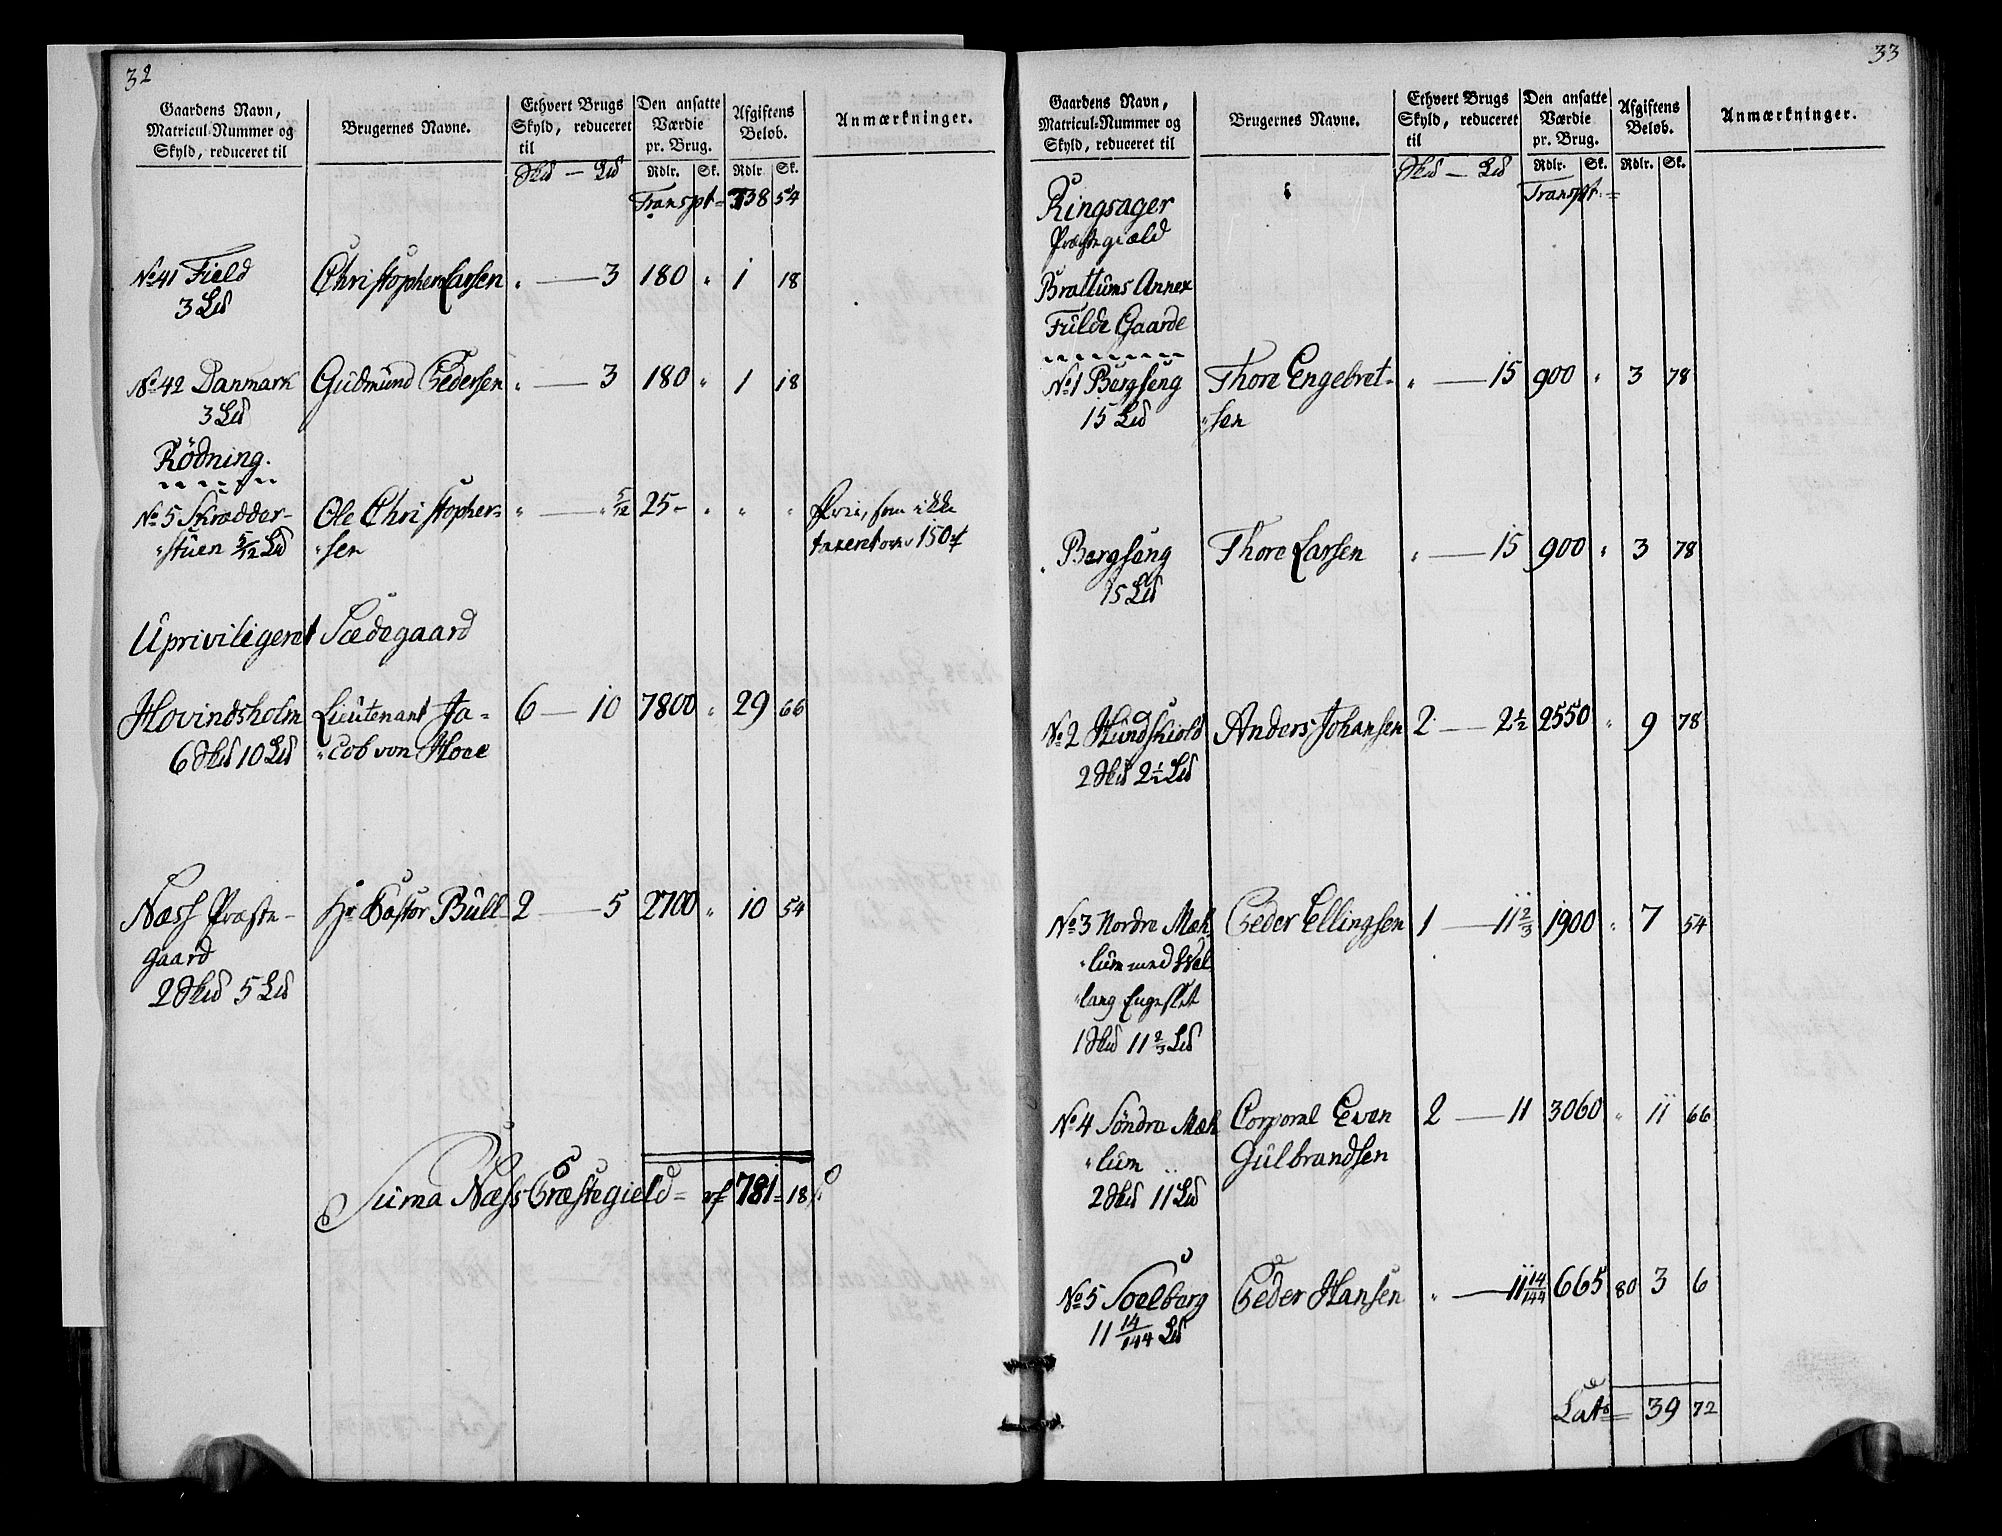 32
Gaardens Navn, Matricul-Nummer og Skyld, reduceret til
Brugernes Navne.
Ethvert Brugs Skyld, reduceret til
Den ansatte Værdie pr. Brug.
Afgiftens Beløb.
Anmærkninger.
Rdlr. Sk. Rdlr. Sk.
Skd — Ld
Transpt = 738 54
No 41 Field Christophen Larsen " — 3 180 " 1 18
3 Ld
No 42 Danmark Gudmund Pedersen " — 3 180 " 1 18
3 Ld
Rödning.
No 5 Skrædder- Ole Christopher- " — " 5/12 25 - " " " Frie, som ikke
"stuen 5/12 Ld "sen 150
Upriviligeret Sædegaard
Hovindsholm Lieutenant Ja- 6 — 10 7800 " 29 66
6 Skd 10 Ld "cob von Hoee
Næss Præste- Hr Pastor Bull 2 — 5 2700 " 10 54
gaard
2 Skd 5 Ld
Suma Næss Præstegield = 781 = 18
33
Gaardens Navn, Matricul-Nummer og Skyld, reduceret til
Brugernes Navne.
Ethvert Brugs Skyld, reduceret til
Den ansatte Værdie pr. Brug.
Afgiftens Beløb.
Anmærkninger.
Rdlr. Sk. Rdlr. Sk.
Skd — Ld
Transpt =
Ringsager
Præstegiæld
Brattums Annex
Fulde Gaarde
No 1 Bergseng Thore Engebret- " — 15 900 " 3 78
15 Ld "sen
" Bergseng Thore Larsen " — 15 900 " 3 78
15 Ld
No 2 Hundskiold Anders Johansen 2 — 2 1/2 2550 " 9 78
2 Skd 2 1/2 Ld
No 3 Nordre Mæh- Peder Ellingsen 1 — 11 2/3 1900 " 7 54
"lum med Wal-
"lang Engeslet
1 Skd 11 2/3 Ld
No 4 Søndre Mæh- Corporal Even 2 — 11 3060 " 11 66
"lum Gulbrandsen
2 Skd 11 Ld
No 5 Soelberg Peder Hansen " — 11 14/144 665 80 3 6
11 14/144 Ld
Lats = 39 72